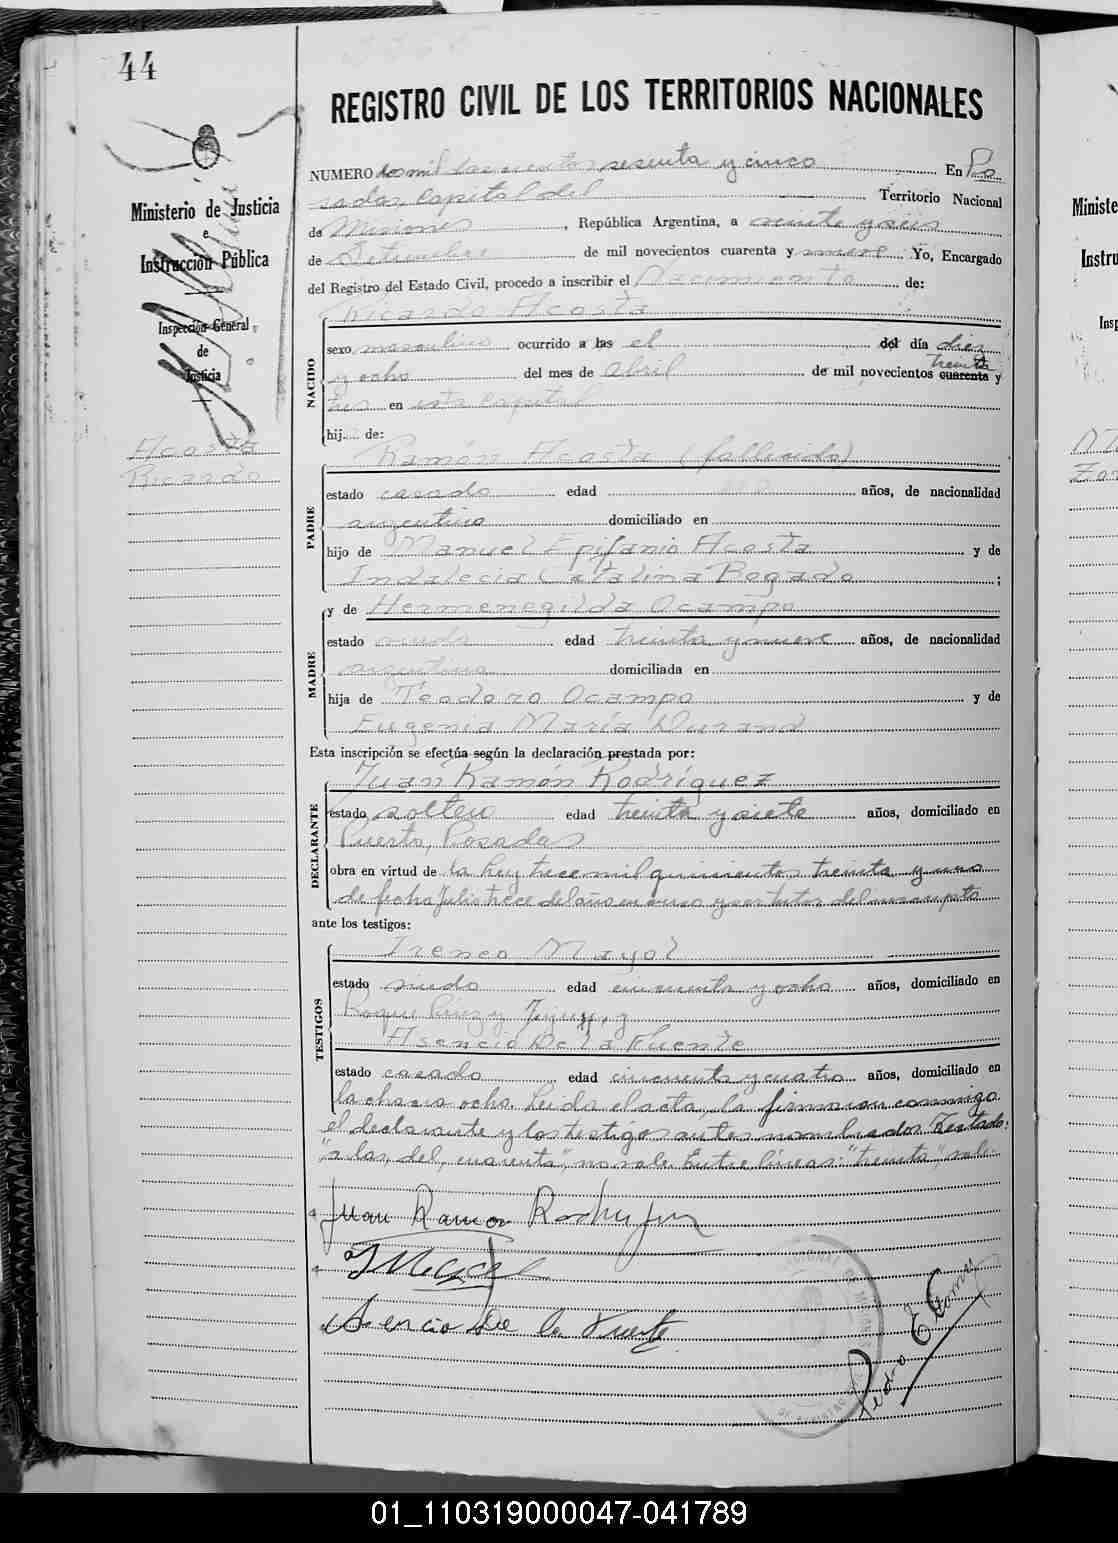 44
REGISTRO CIVIL DE LOS TERRITORIOS NACIONALES
Ministerio de Justicia
e
Instrucción Pública
Inspección General
de
Justicia
Acosta
Ricardo
NUMERO dos mil doscientos sesenta y cinco En Po
sadas, Capital del Territorio Nacional
de Misiones, República Argentina, a veinte y seis
de Setiembre de mil novecientos cuarenta y nueve Yo, Encargado
del Registro del Estado Civil, procedo a inscribir el Nacimiento de:
Ricardo Acosta
NACIDO
sexo masculino ocurrido a las el del día diez
y ocho del mes de Abril de mil novecientos cuarenta treinta y
tres en esta Capital
hij... de:
PADRE
Ramón Acosta (fallecido)
estado casado edad años, de nacionalidad
argentino domiciliado en
hijo de Manuel Epifanio Acosta y de
Indalecia Catalina Bogado ;
MADRE
y de Hermenegilda Ocampo
estado viuda edad treinta y nueve años, de nacionalidad
argentina domiciliada en
hija de Teodoro Ocampo y de
Eugenia María Durand
Esta inscripción se efectúa según la declaración prestada por:
DECLARANTE
Juan Ramón Rodríguez
estado soltero edad treinta y siete años, domiciliado en
Puerto, Posadas
obra en virtud de la ley trece mil quinientos treinta y uno
de fecha Julio trece del año en curso y ser tutor del inscripto
ante los testigos:
TESTIGOS
Ireneo Mayol
estado viudo edad cincuenta y ocho años, domiciliado en
Roque Pérez y Jujuy, y
Asencio De la Fuente
estado casado edad cincuenta y cuatro años, domiciliado en
la chacra ocho. Leída el acta la firmaron conmigo
el declarante y los testigos antes nombrados. Testado:
"a las, del, cuarenta", no vale. Entre líneas: "treinta", vale.
Juan Ramon Rodriguez
I Mayol
Asencio De la Fuente
Pedro E Gomez
Ministe
Instru
Insp
01_110319000047-041789